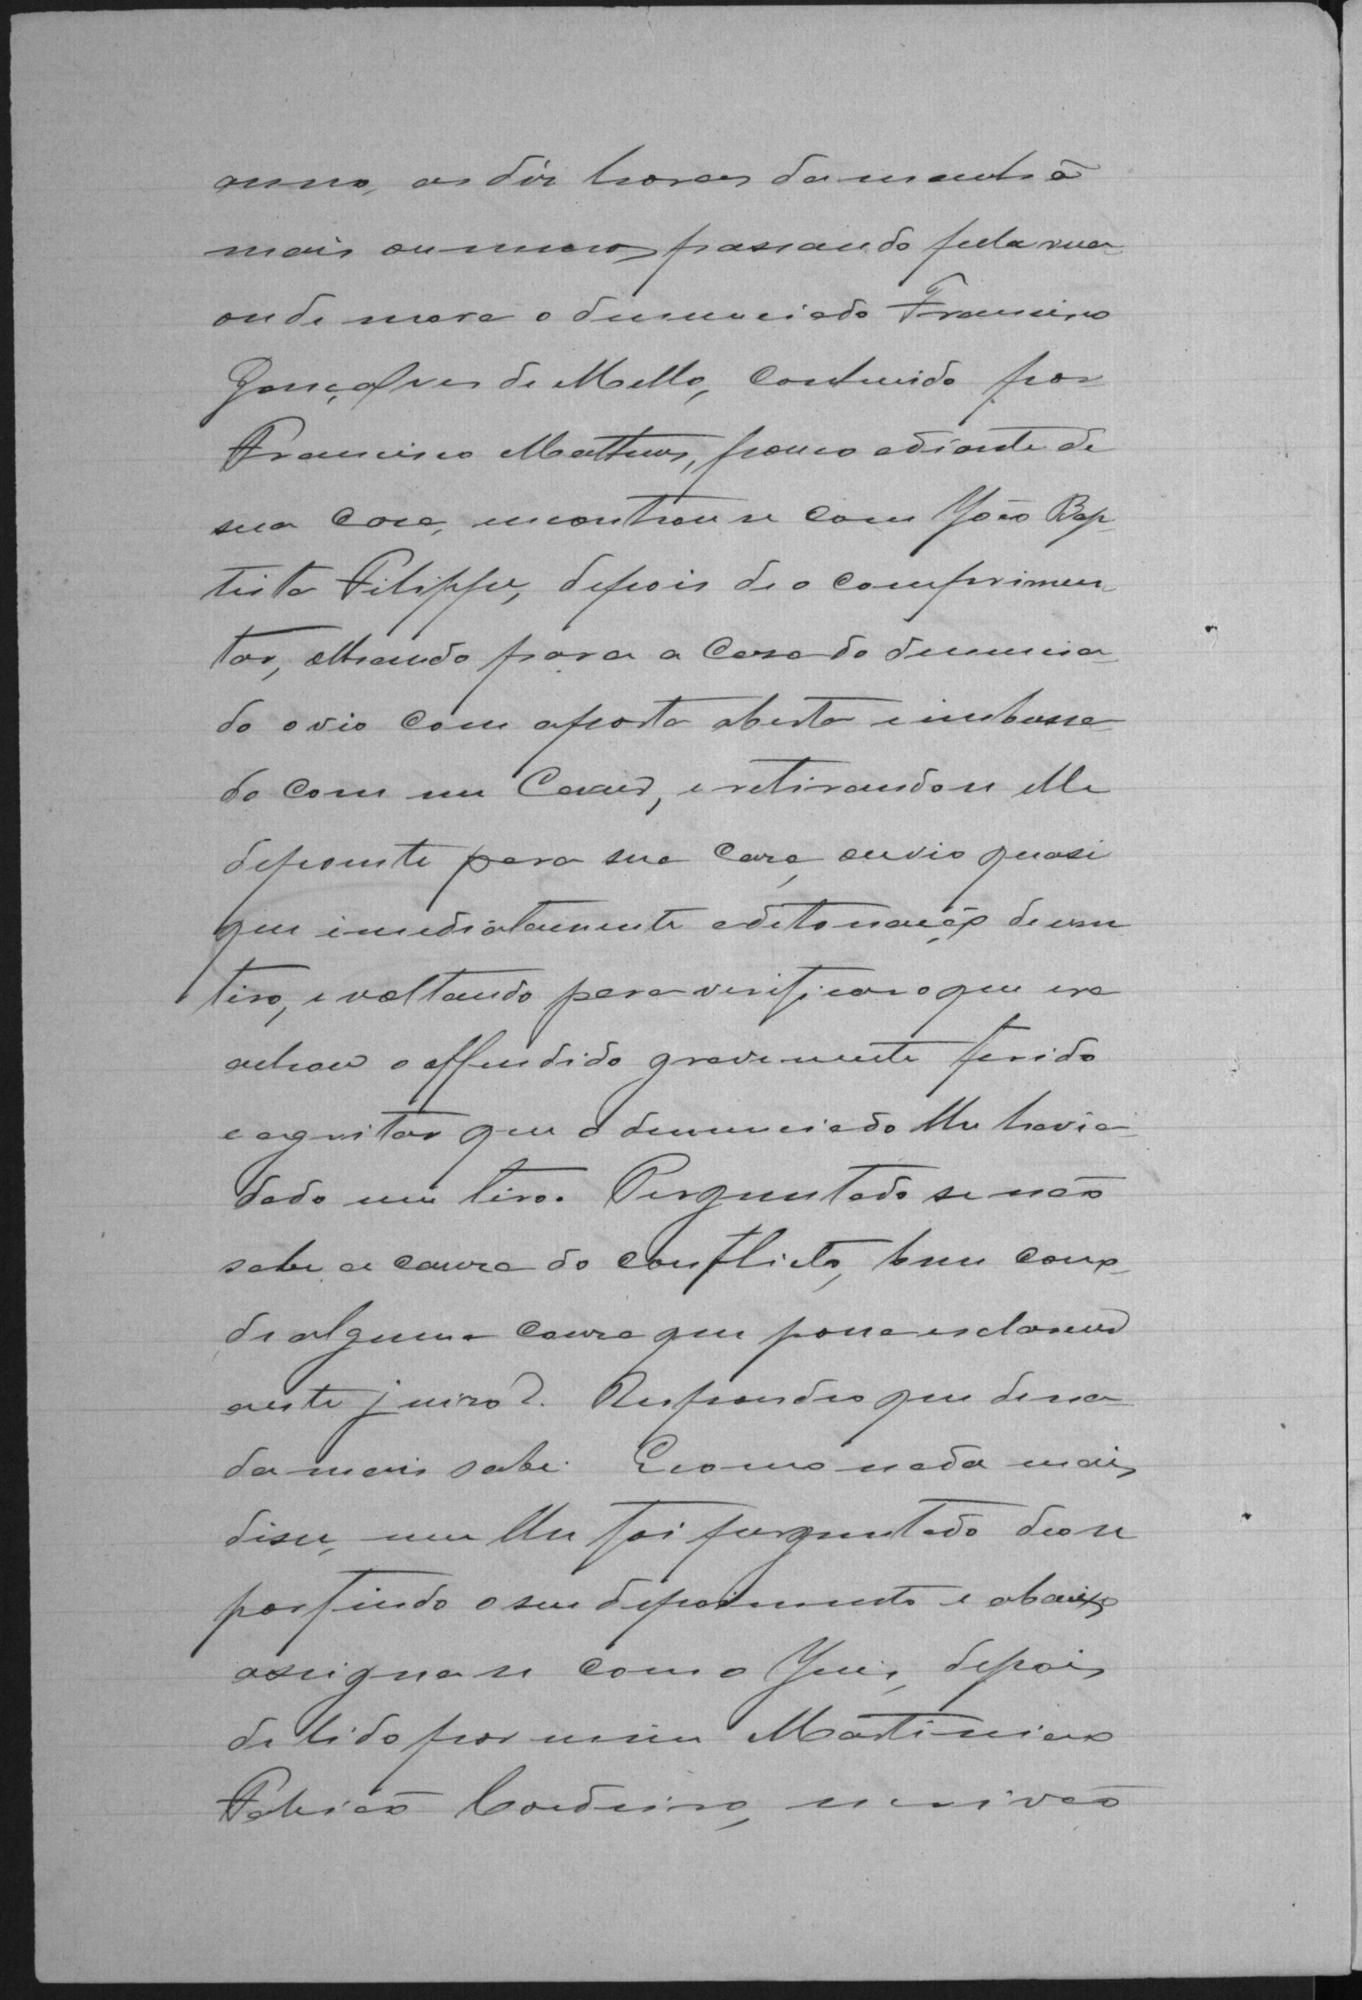 anno, as déz horas da manhã
mais ou menos passando pela rua
onde mora o denunciado Francisco
Gonçalves de Mello, conhecido por
Francisco Matheus, pouco adiante de
sua casa, encontrou se com João Bap-
tista Filippe, depois de o comprimen-
tar, olhando para a casa do denuncia-
do o vio com a porta aberta e
do com um e retirando se elle
depoente para sua casa, ouvio quasi
que immediatamente a detonação de um
tiro, e voltando para verificar o que era
achou o offendido gravemente ferido
e a gritar que o denunciado lhe havia
dado um tiro. Perguntado se não
sabe a causa do conflicto, bem como
de alguma cousa que possa esclarecer
a este juizo? Respondeu que de na-
da mais sabe. E como nada mais
disse, nem lhe foi perguntado deo se
por findo o seu depoimento e abaixo
assigna se com o Juiz, depois
de lido por mim Martiniano
Fabião Cordeiro, escrivão